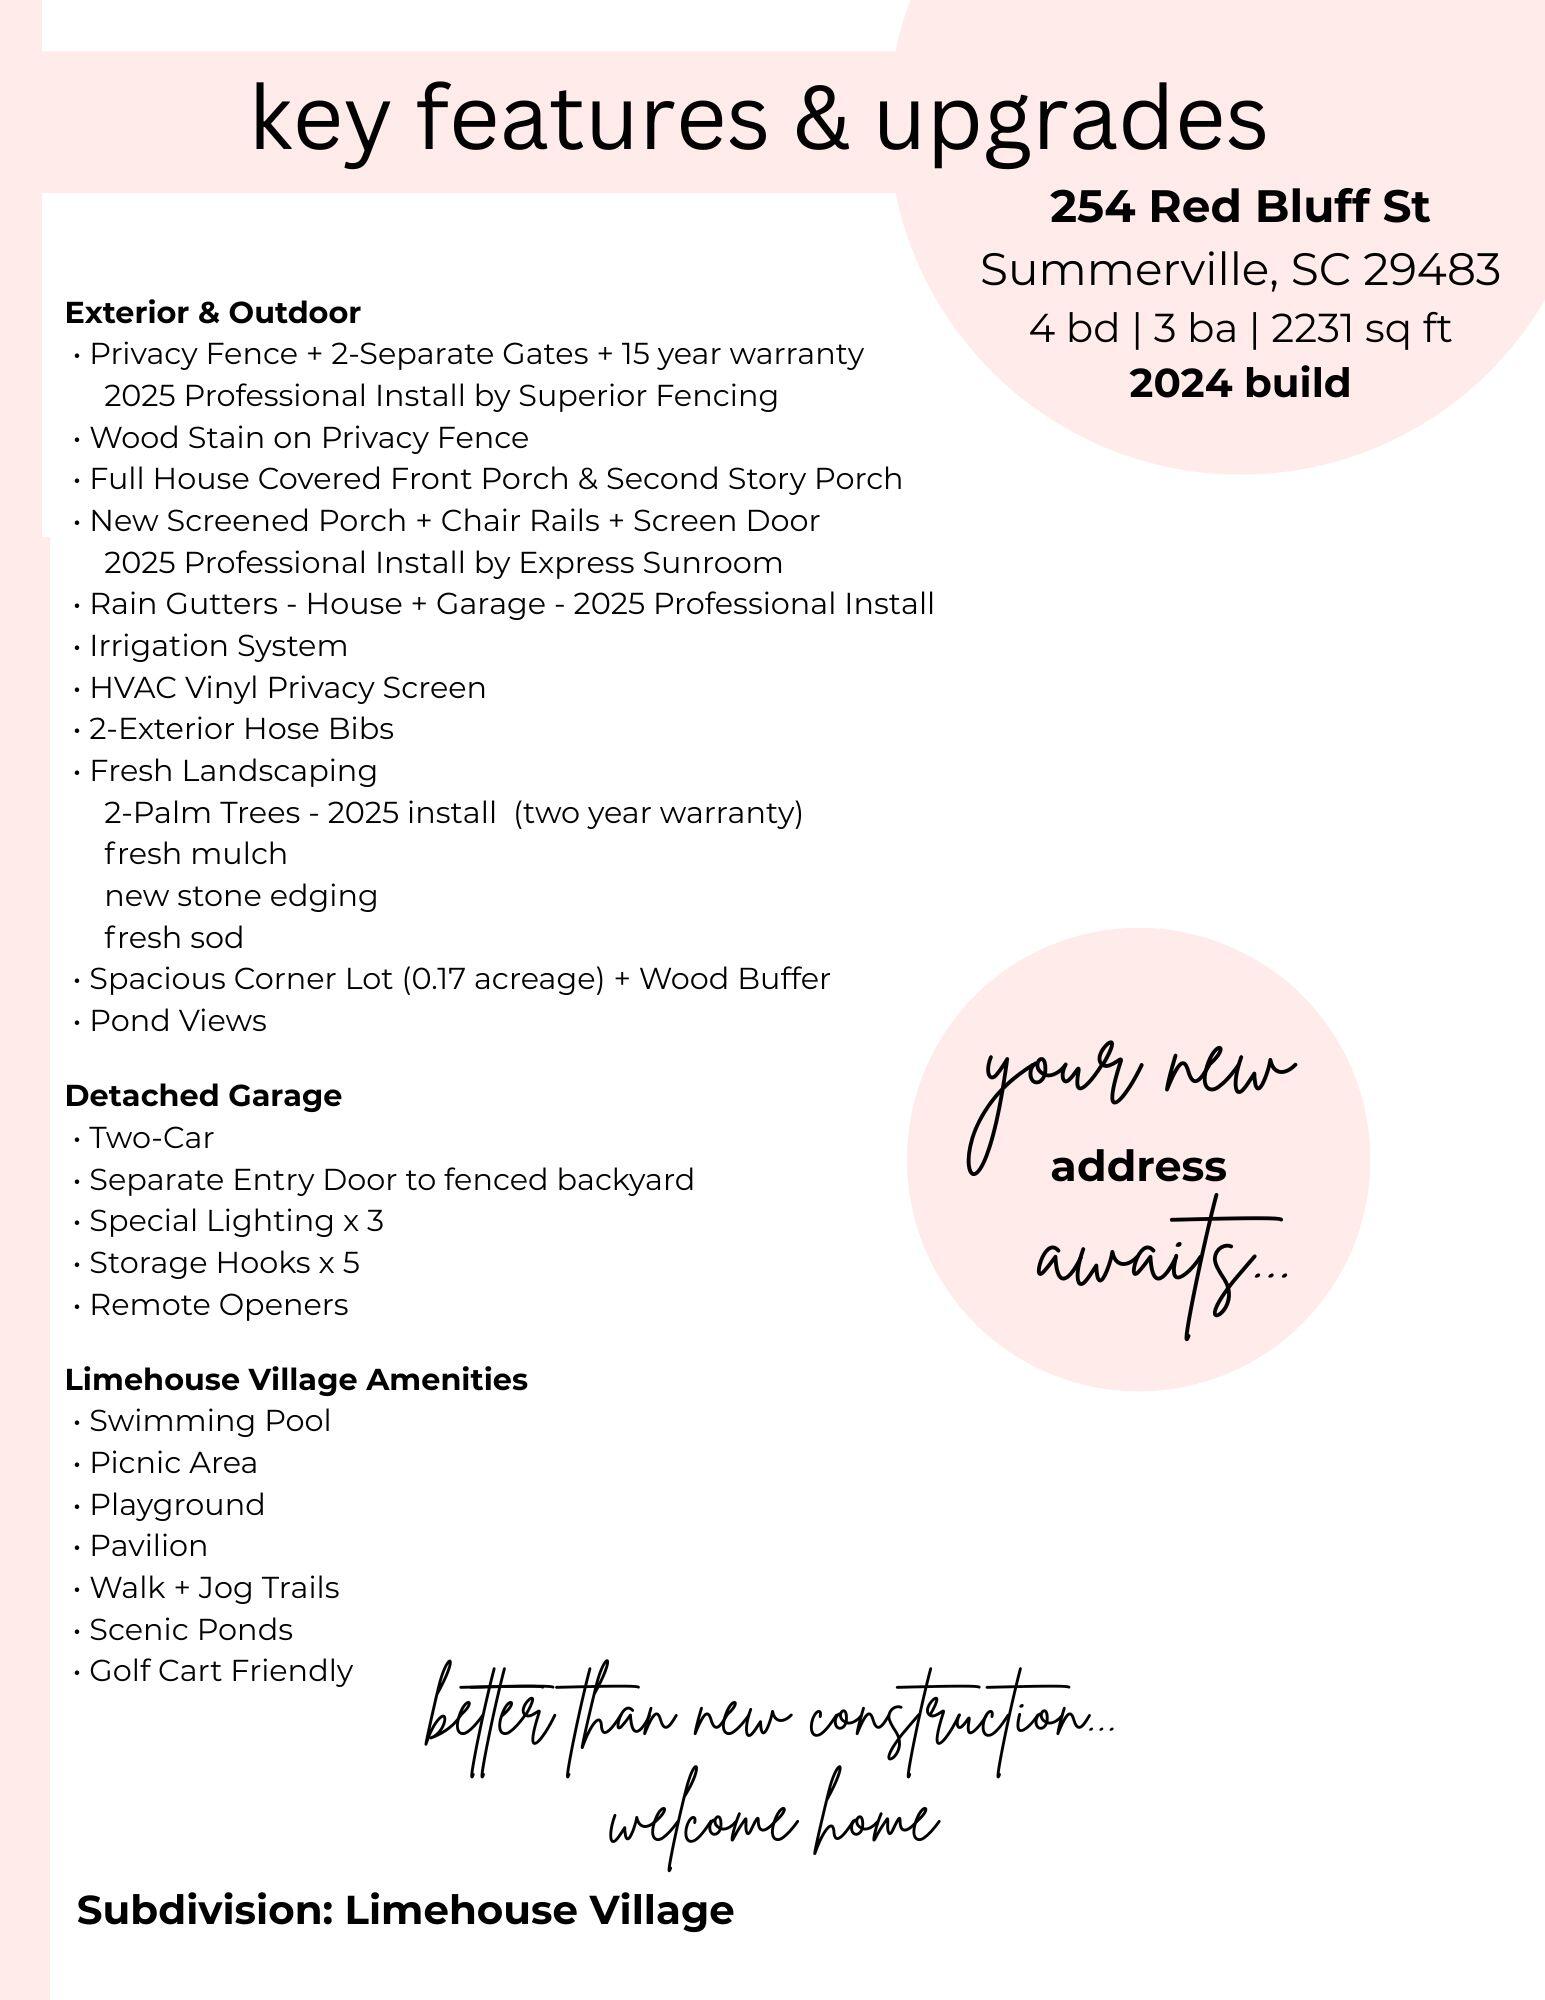 key features & upgrades
254 Red Bluff St
Summerville, SC 29483
4 bd | 3 ba | 2231 sq ft
2024 build
Exterior & Outdoor
• Privacy Fence + 2-Separate Gates + 15 year warranty
2025 Professional Install by Superior Fencing
• Wood Stain on Privacy Fence
• Full House Covered Front Porch & Second Story Porch
• New Screened Porch + Chair Rails + Screen Door
2025 Professional Install by Express Sunroom
• Rain Gutters - House + Garage - 2025 Professional Install
• Irrigation System
• HVAC Vinyl Privacy Screen
• 2-Exterior Hose Bibs
• Fresh Landscaping
2-Palm Trees - 2025 install (two year warranty)
fresh mulch
new stone edging
fresh sod
• Spacious Corner Lot (0.17 acreage) + Wood Buffer
• Pond Views
Detached Garage
• Two-Car
• Separate Entry Door to fenced backyard
• Special Lighting x 3
• Storage Hooks x 5
• Remote Openers
your new
address
awaits...
Limehouse Village Amenities
• Swimming Pool
• Picnic Area
• Playground
• Pavilion
• Walk + Jog Trails
• Scenic Ponds
• Golf Cart Friendly
better than new construction...
welcome home
Subdivision: Limehouse Village